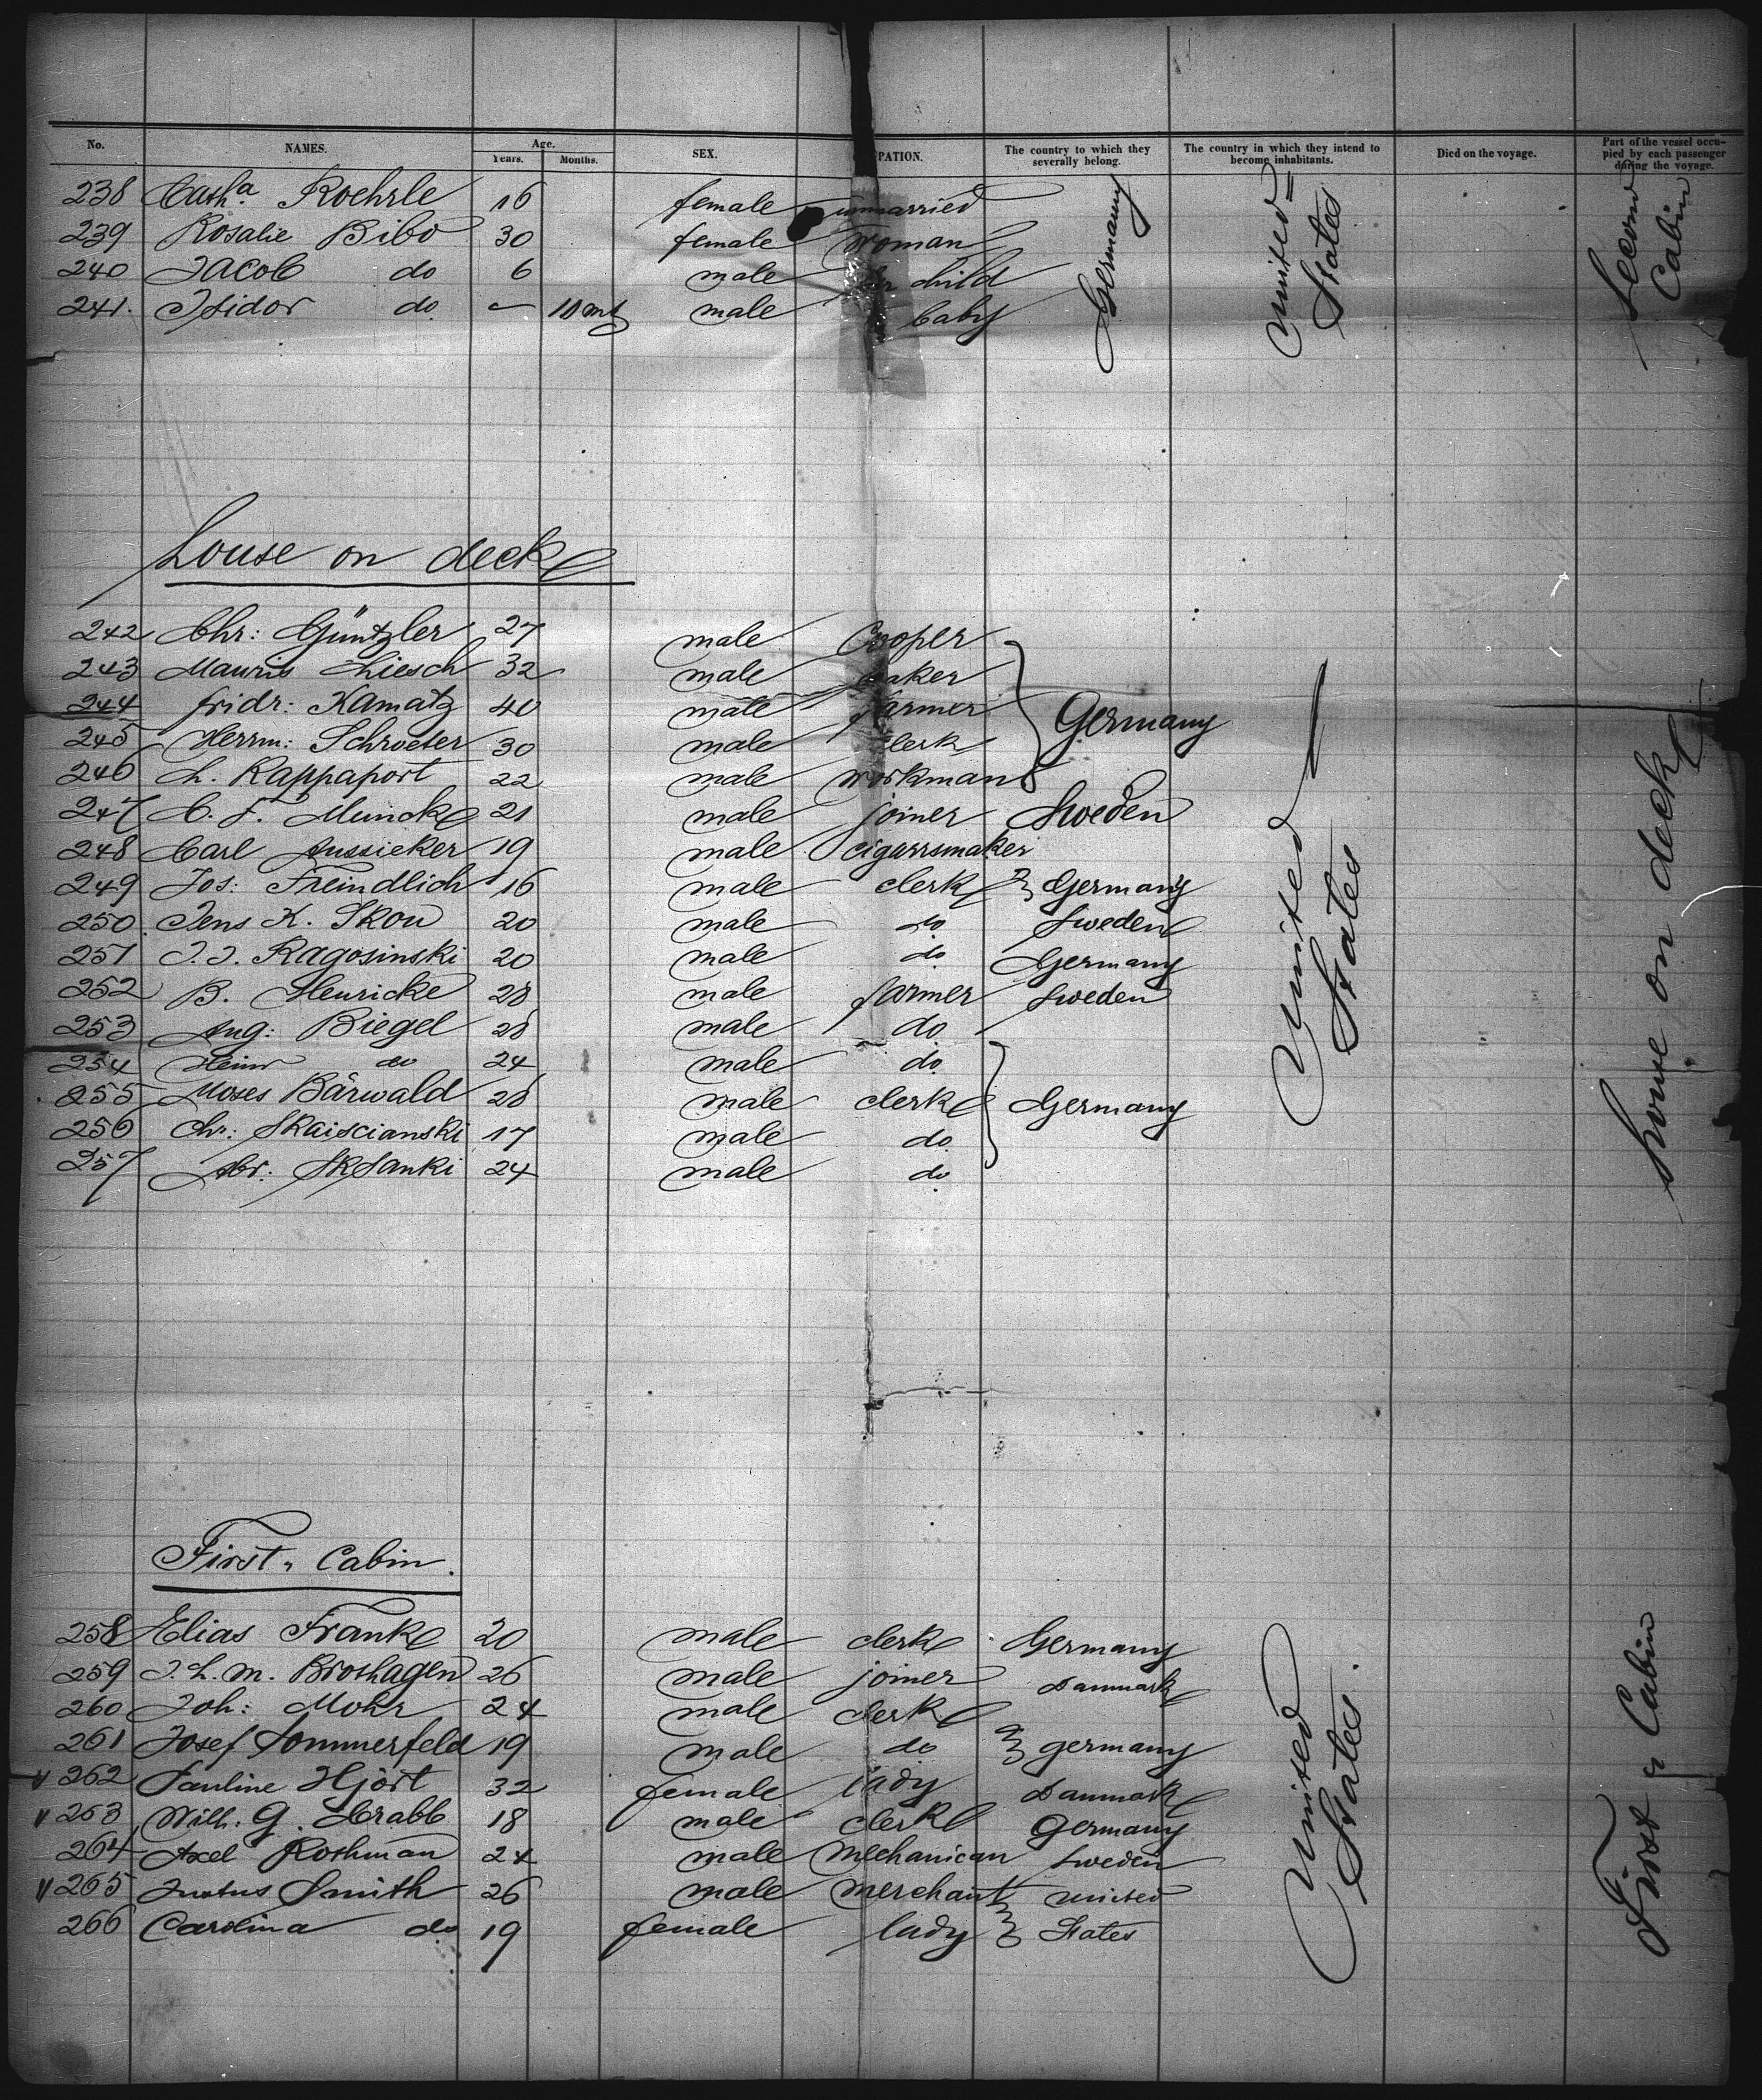 No. NAMES. Age. Years. Months. SEX. PATION. The country to which they severally belong. The country in which they intend to become inhabitants. Died on the voyage. Part of the vessel occupied by each passenger during the voyage.
238 Cath.a Roehrle 16 female unmarried Germany United States Second Cabin
239 Rosalie Bibo 30 female Woman
240 Jacob do 6 male child
241. Isidor do – 10 mt male baby
house on deck
242 Chr: Güntzler 27 male Cooper
243 Mauris Liesch 32 male baker
244 fridr: Kamatz 40 male farmer Germany
245 Herrm: Schroeter 30 male clerk
246 L. Rappaport 22 male workman
247 C. F. Muncke 21 male joiner Sweden
248 Carl Aussieker 19 male cigarrsmaker
249 Jos: Freindlich 16 male clerk Germany
250. Jens K. Skou 20 male do Sweden
251 J. J. Ragosinski 20 male do Germany
252 B. Henricke 28 male farmer Sweden
253 Aug: Biegel 28 male do
254 Heinr do 24 male do
255 Moses Bärwald 28 male clerk Germany
256 Chr: Skaiscianski 17 male do
257 Abr: Sksanki 24 male do
United States
house on deck
First Cabin.
258 Elias Frank 20 male clerk Germany
259 J. L. M. Broshagen 26 male joiner Danmark
260 Joh: Mohr 24 male clerk
261 Josef Sommerfeld 19 male do germany
262 Pauline Hjört 32 female lady Danmark
263 Wilh. G. Krabb 18 male clerk Germany
264 Axel Rothman 24 male mechanican Sweden
265 Justus Smith 26 male merchant united
266 Carolina do 19 female lady States
United States.
First Cabin